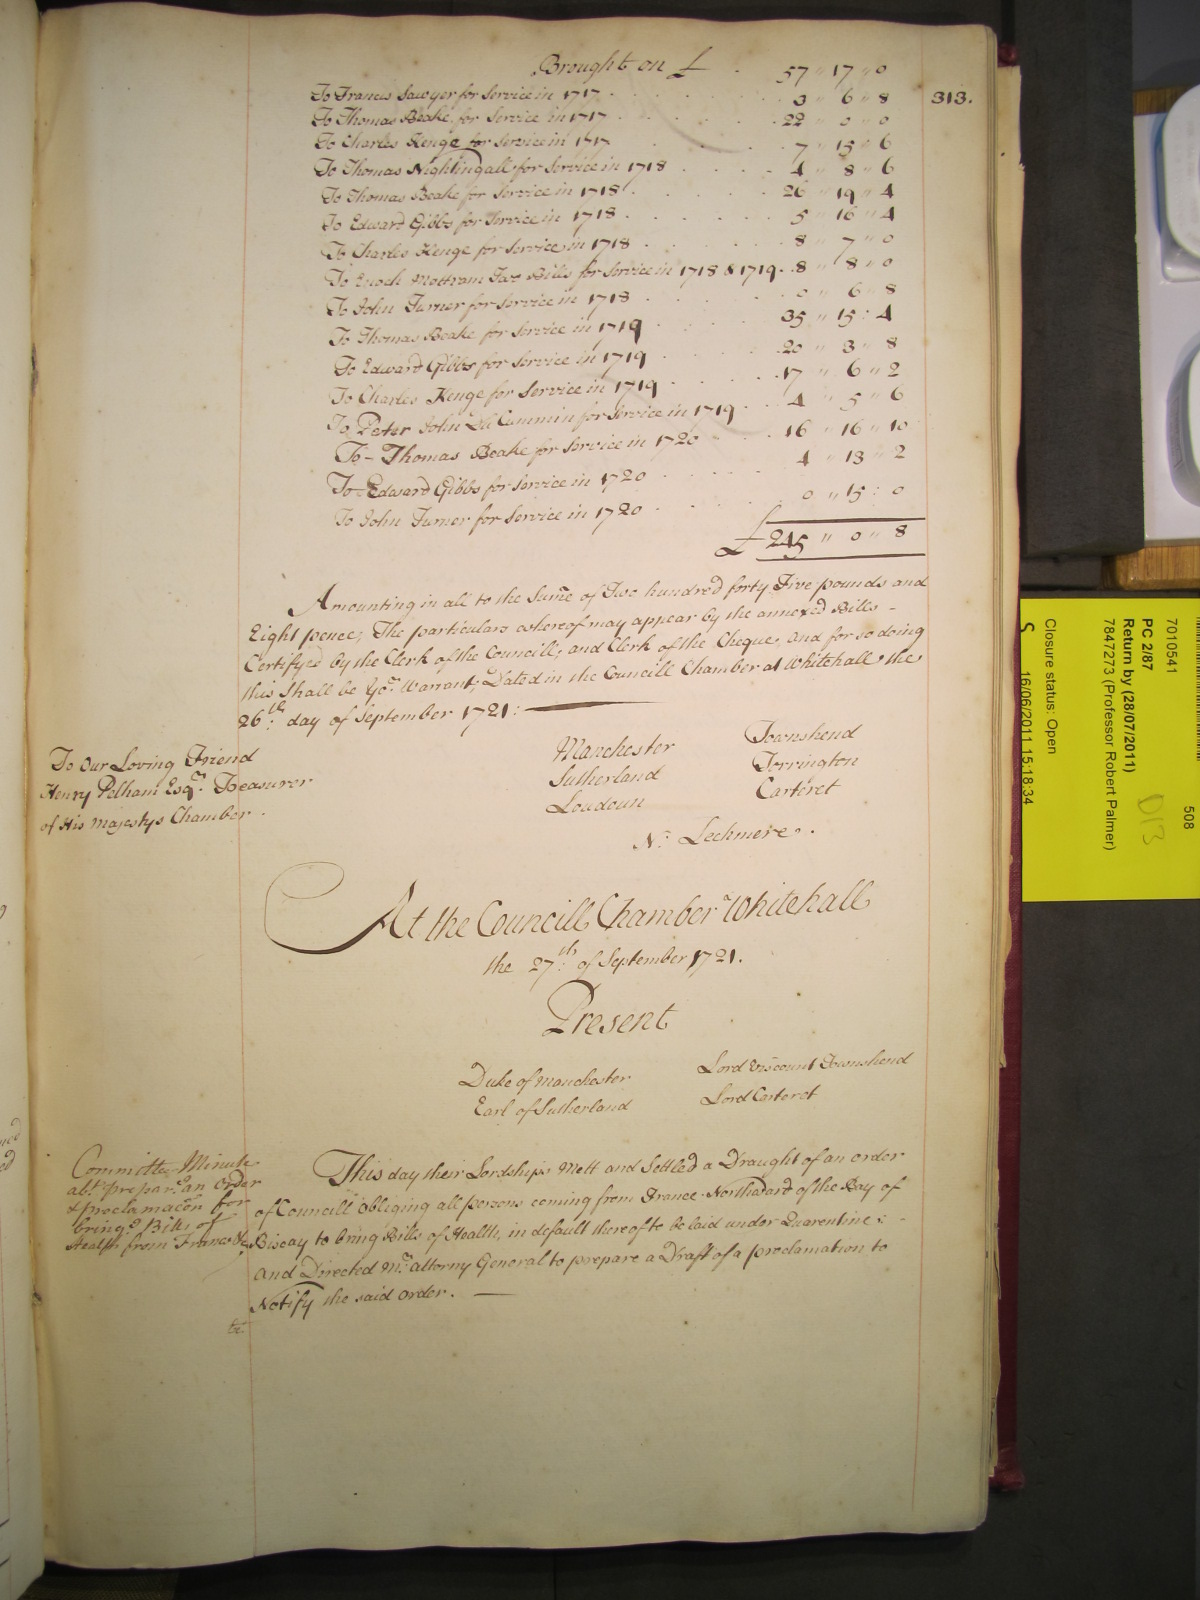 Brought on £ . 57 " 17 " 0
313.
To Francis Sawyer for Service in 1717 . . . . 3 " 6 " 8
To Thomas Beake for Service in 1717 . . . . 22 " 0 " 0
To Charles Kenge for Service in 1717 . . . . 7 " 15 " 6
To Thomas Nightingall for Service in 1718 . . . . 4 " 8 " 6
To Thomas Beake for Service in 1718 . . . . 26 " 19 " 4
To Edward Gibbs for Service in 1718 . . . . 5 " 16 " 4
To Charles Kenge for Service in 1718 . . . . 8 " 7 " 0
To Enoch Mottram Two Bills for Service in 1718 & 1719 . 8 " 8 " 0
To John Turner for Service in 1718 . . . . 0 " 6 " 8
To Thomas Beake for Service in 1719 . . . . 35 " 15 : 4
To Edward Gibbs for Service in 1719 . . . . 20 " 3 " 8
To Charles Kenge for Service in 1719 . . . . 17 " 6 " 2
To Peter John Cummin for Service in 1719 . . 4 " 5 " 6
To - Thomas Beake for Service in 1720 . . . 16 " 16 " 10
To Edward Gibbs for Service in 1720 . . . . 4 " 13 " 2
To John Turner for Service in 1720 . . . . 0 " 15 : 0
£ 245 " 0 " 8
Amounting in all to the Sume of Two hundred forty Five pounds and
Eight pence; The particulars whereof may appear by the annexed Bills -
Certifyed by the Clerk of the Councill, and Clerk of the Cheque, And for so doing
this Shall be Yor. Warrant; Dated in the Councill Chamber at Whitehall the
26th. day of September 1721:
To Our Loving Friend
Henry Pelham Esqr. Treasurer
of His Majestys Chamber .
Manchester Townshend
Sutherland Torrington
Loudoun Carteret
N: Lechmere .
At the Councill Chamber Whitehall
the 27th: of September 1721.
Present
Duke of Manchester Lord Viscount Townshend
Earl of Sutherland Lord Carteret
Committee Minute
abt. prepar.g an Order
& proclamacōn for
bring.g Bills of
Health from France &c
This day their Lordships Mett and Settled a Draught of an order
of Councill Obliging all persons coming from France Northward of the Bay of
Biscay to bring Bills of Health, in default thereof to be laid under Quarentine: -
And Directed Mr. Attorny General to prepare a Draft of a proclamation to
Notify the said Order. —
7010541
508
PC 2/87
Return by (28/07/2011)
7847273 (Professor Robert Palmer)
D13
Closure status: Open
16/06/2011 15:18:34
S